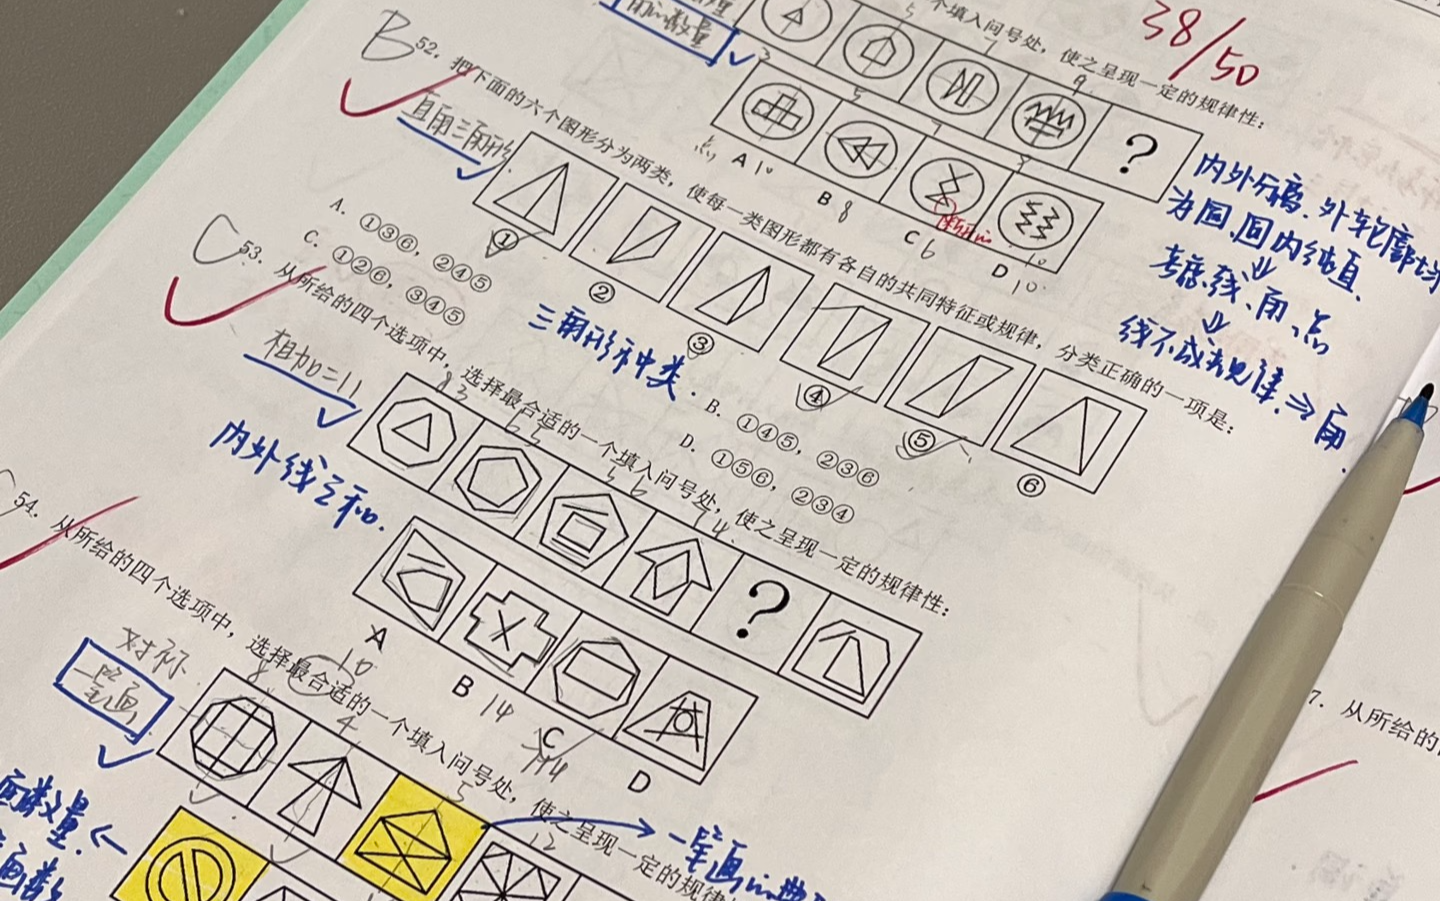 个填入问号处，使之呈现一定的规律性：
38/50
用的数量
3
5
7
9
?
点
A
10
B
8
C
6
D
10
内外分离、外轮廓均
为圆，圆内纯直
考虑线、角、点
线不成规律⇒角
B
52. 把下面的六个图形分为两类，使每一类图形都有各自的共同特征或规律，分类正确的一项是：
直角三角形
①
②
③
④
⑤
⑥
三角形种类
A. ①③⑥，②④⑤
B. ①④⑤，②③⑥
C. ①②⑥，③④⑤
D. ①⑤⑥，②③④
C
53. 从所给的四个选项中，选择最合适的一个填入问号处，使之呈现一定的规律性：
相加=11
内外线之和
8 3
6 5
5 6
7 4
?
A
10
B
14
C
D
54. 从所给的四个选项中，选择最合适的一个填入问号处，使之呈现一定的规律
对称
一笔画
8
4
5
12
面数量
画数
一笔画的
7. 从所给的